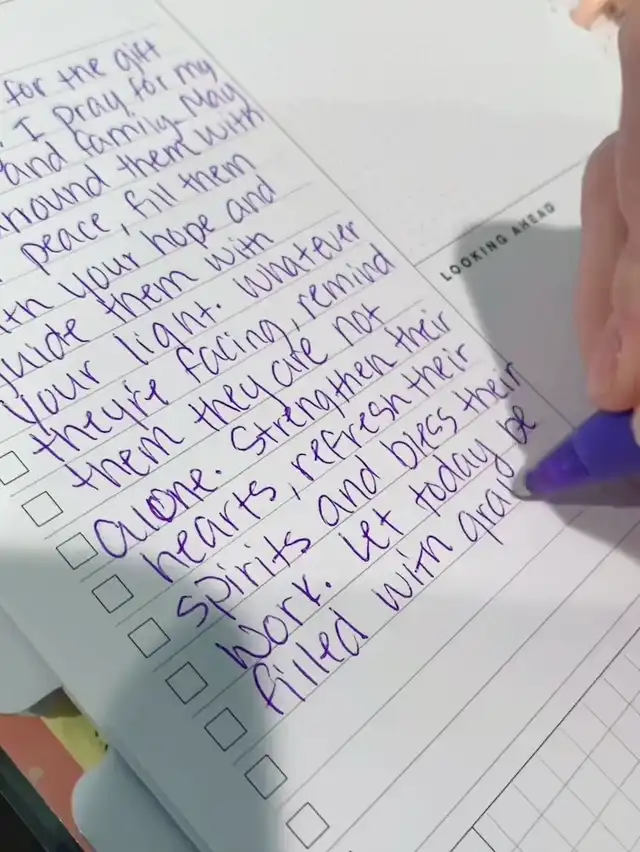 for the gift
I pray for my
and family. May
them with
peace, fill them
your hope and
guide them with
your light. Whatever
they're facing, remind
them they are not
alone. Strengthen their
hearts, refresh their
spirits and bless their
work. Let today be
filled with gra
LOOKING AHEAD